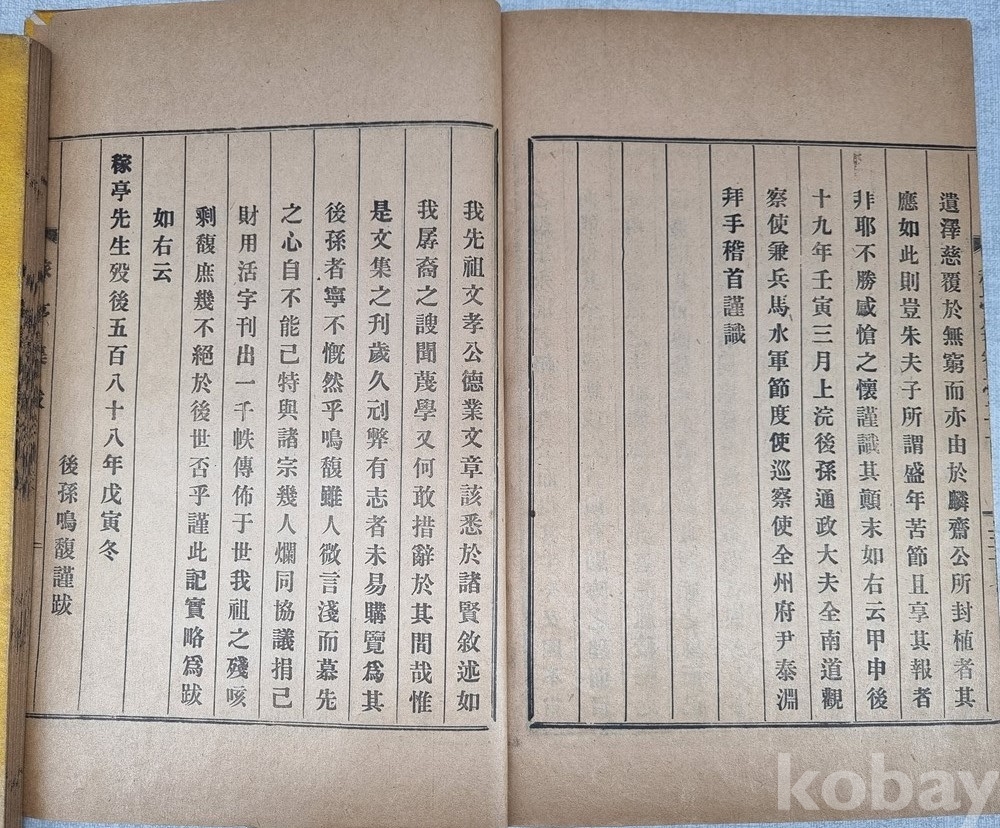 遺澤慈覆於無窮而亦由於麟齋公所封植者其
應如此則豈朱夫子所謂盛年苦節且享其報者
非耶不勝感愴之懷謹識其顚末如右云甲申後
十九年壬寅三月上浣後孫通政大夫全南道觀
察使兼兵馬水軍節度使巡察使全州府尹泰淵
拜手稽首謹識
我先祖文孝公德業文章該悉於諸賢敘述如
我孱裔之謏聞蔑學又何敢措辭於其間哉惟
是文集之刊歲久刓弊有志者未易購覽爲其
後孫者寧不慨然乎鳴馥雖人微言淺而慕先
之心自不能已特與諸宗幾人爛同協議捐己
財用活字刊出一千帙傳佈于世我祖之殘咳
剩馥庶幾不絕於後世否乎謹此記實略爲跋
如右云
稼亭先生歿後五百八十八年戊寅冬
後孫鳴馥謹跋
kobay